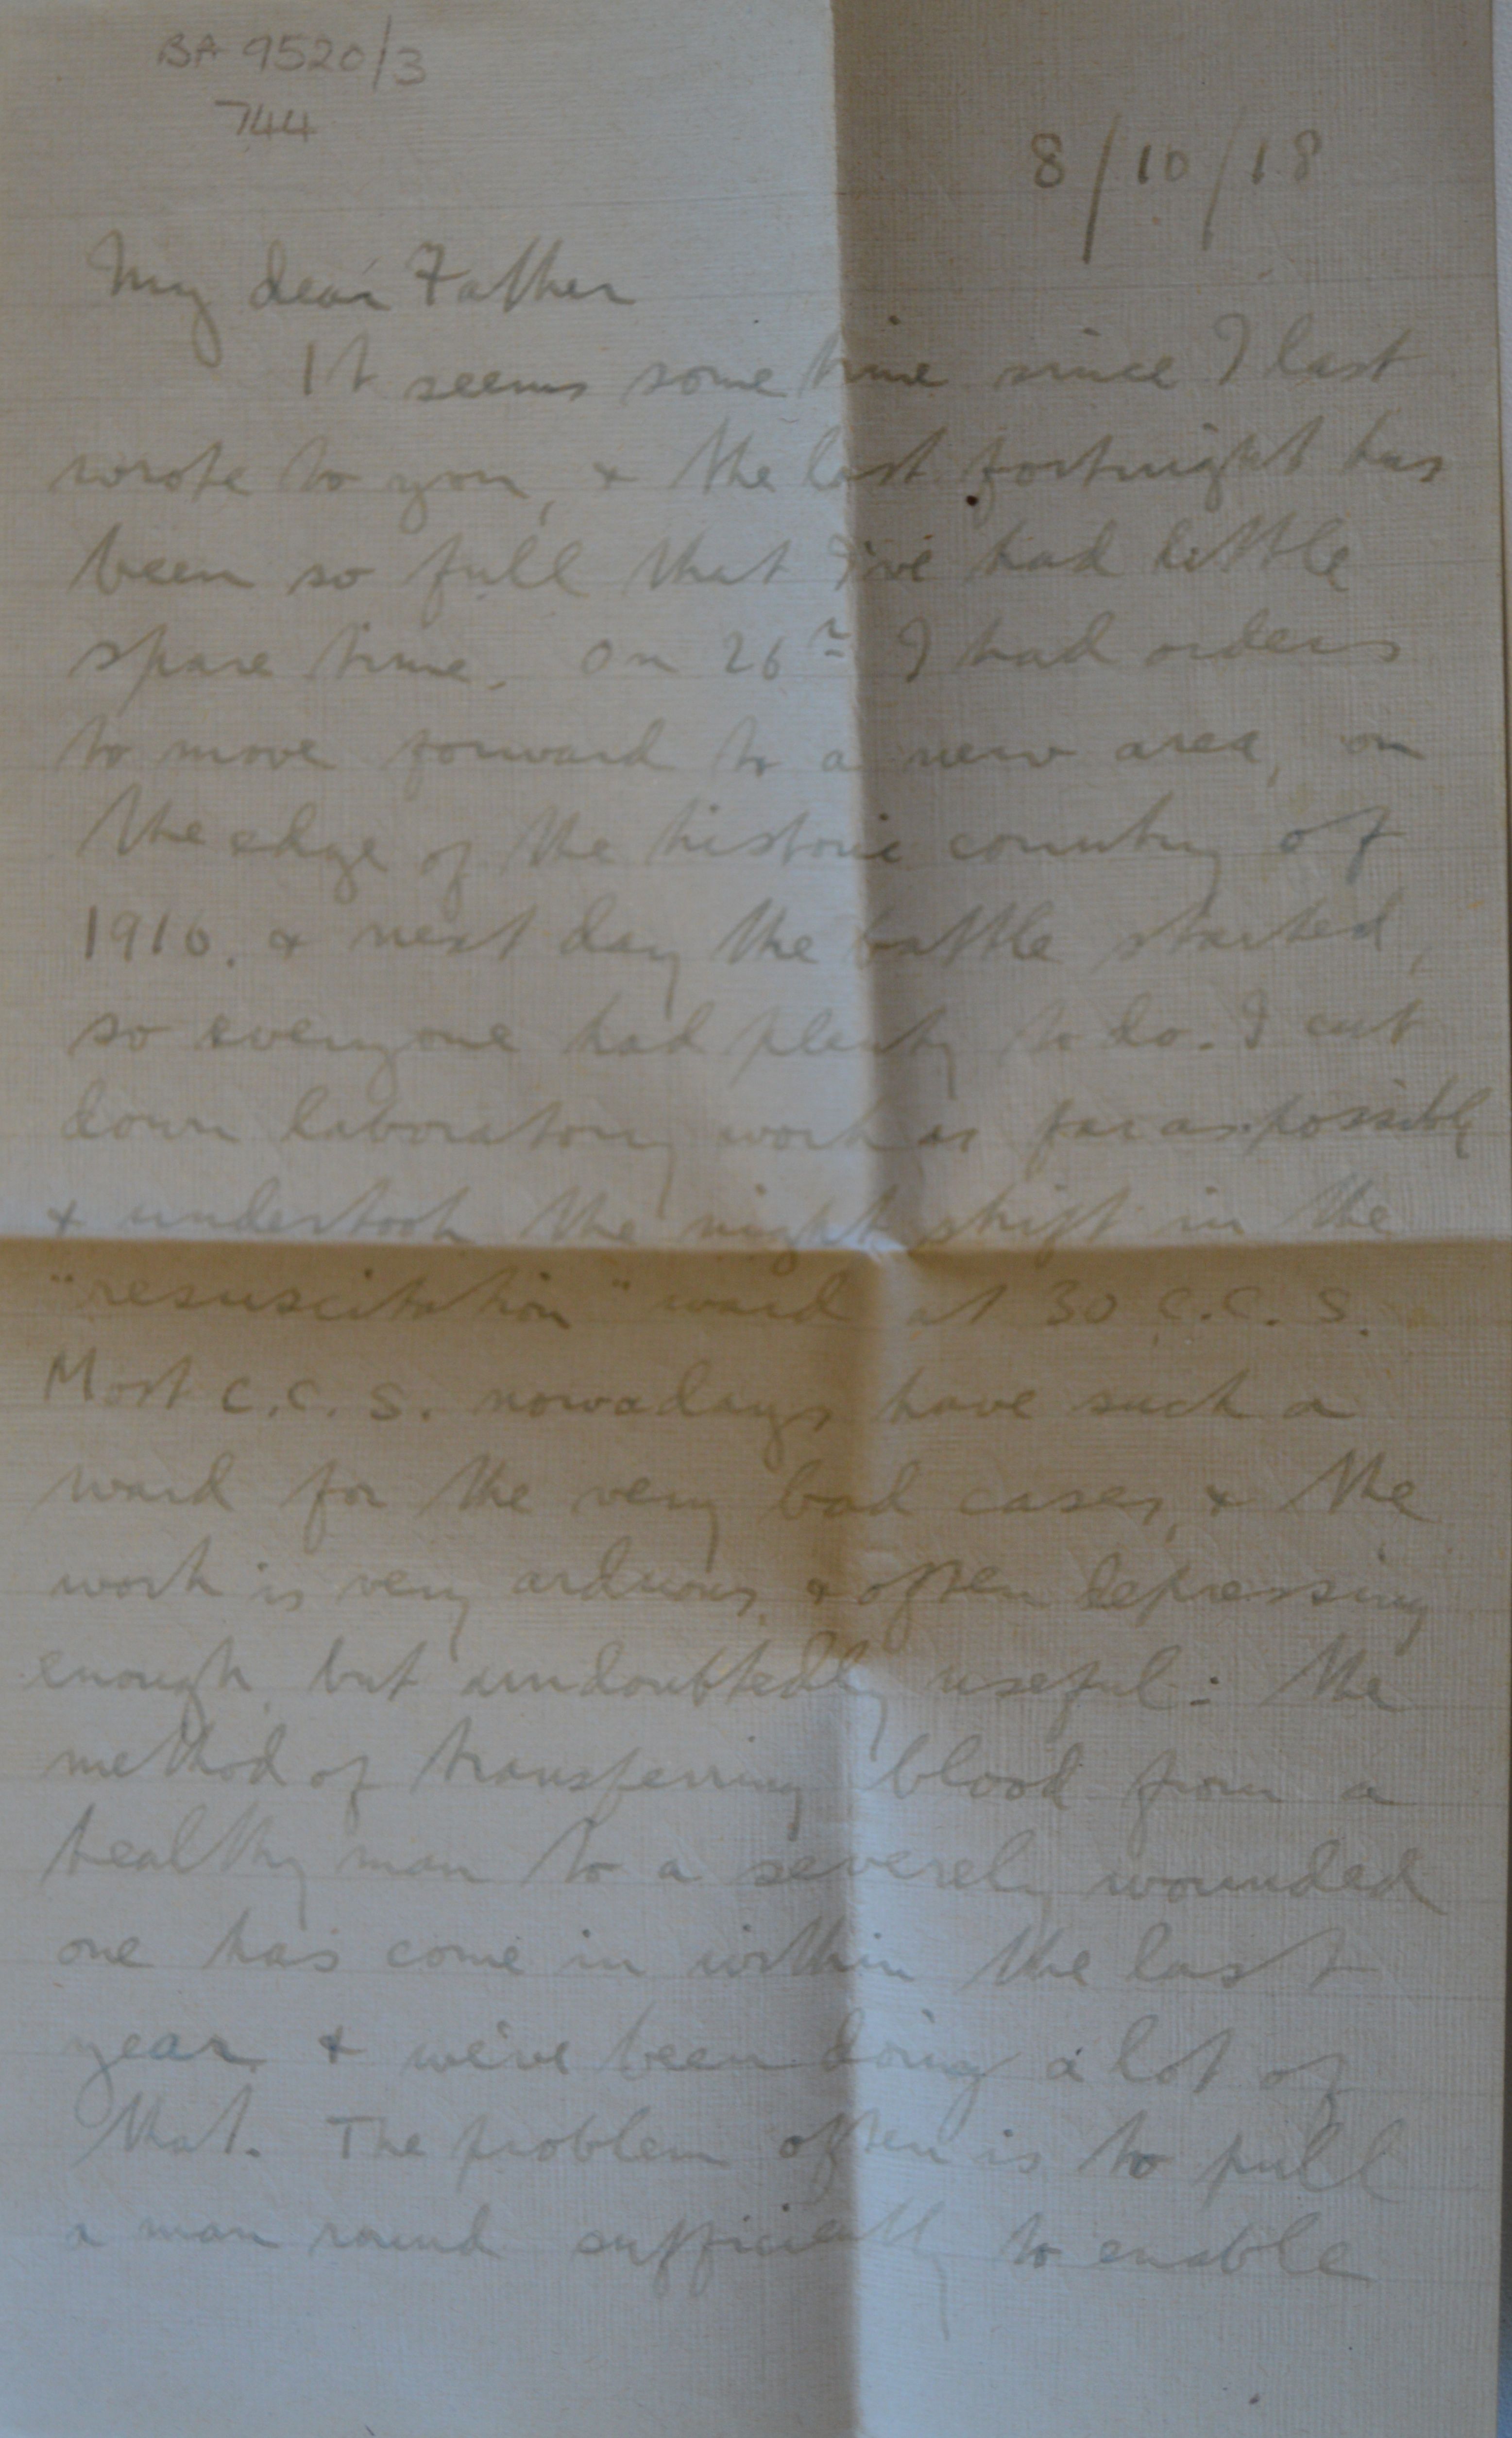 BA 9520/3
744
8/10/18
My dear Father
It seems some time since I last
wrote to you, & the last fortnight has
been so full that I've had little
spare time. On 26th I had orders
to move forward to a new area, on
the edge of the historic country of
1916. & next day the battle started,
so everyone had plenty to do. I cut
down laboratory work as far as possible
& undertook the night shift in the
"resuscitation" ward at 30 C.C.S.
Most C.C.S. nowadays have such a
ward for the very bad cases, & the
work is very arduous, & often depressing
enough, but undoubtedly useful: the
method of transferring blood from a
healthy man to a severely wounded
one has come in within the last
year & we've been doing a lot of
that. The problem often is to pull
a man round sufficiently to enable